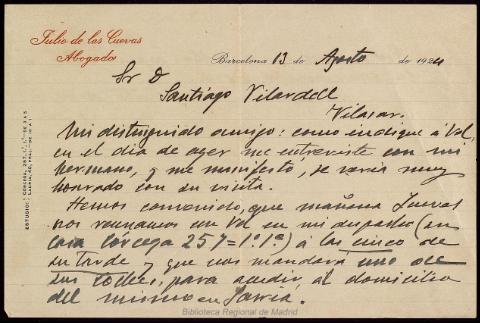 Julio de las Cuevas
Abogado
Barcelona 13 de Agosto de 1924
Sr D
Santiago Vilardell
Vilasar.
Mi distinguido amigo: como indiqué á Vd,
en el dia de ayer me entrevisté con mi
hermano, y me manifestó, se veria muy
honrado con su visita.
Hemos convenido, que mañana Jueves
nos reunamos con Vd en mi despacho (en
casa Corcega 257=1.1ª) á las cinco de
su tarde, y que nos mandará uno de
sus coches, para acudir, al domicilio
del mismo en Sarria.
ESTUDIO:
Biblioteca Regional de Madrid